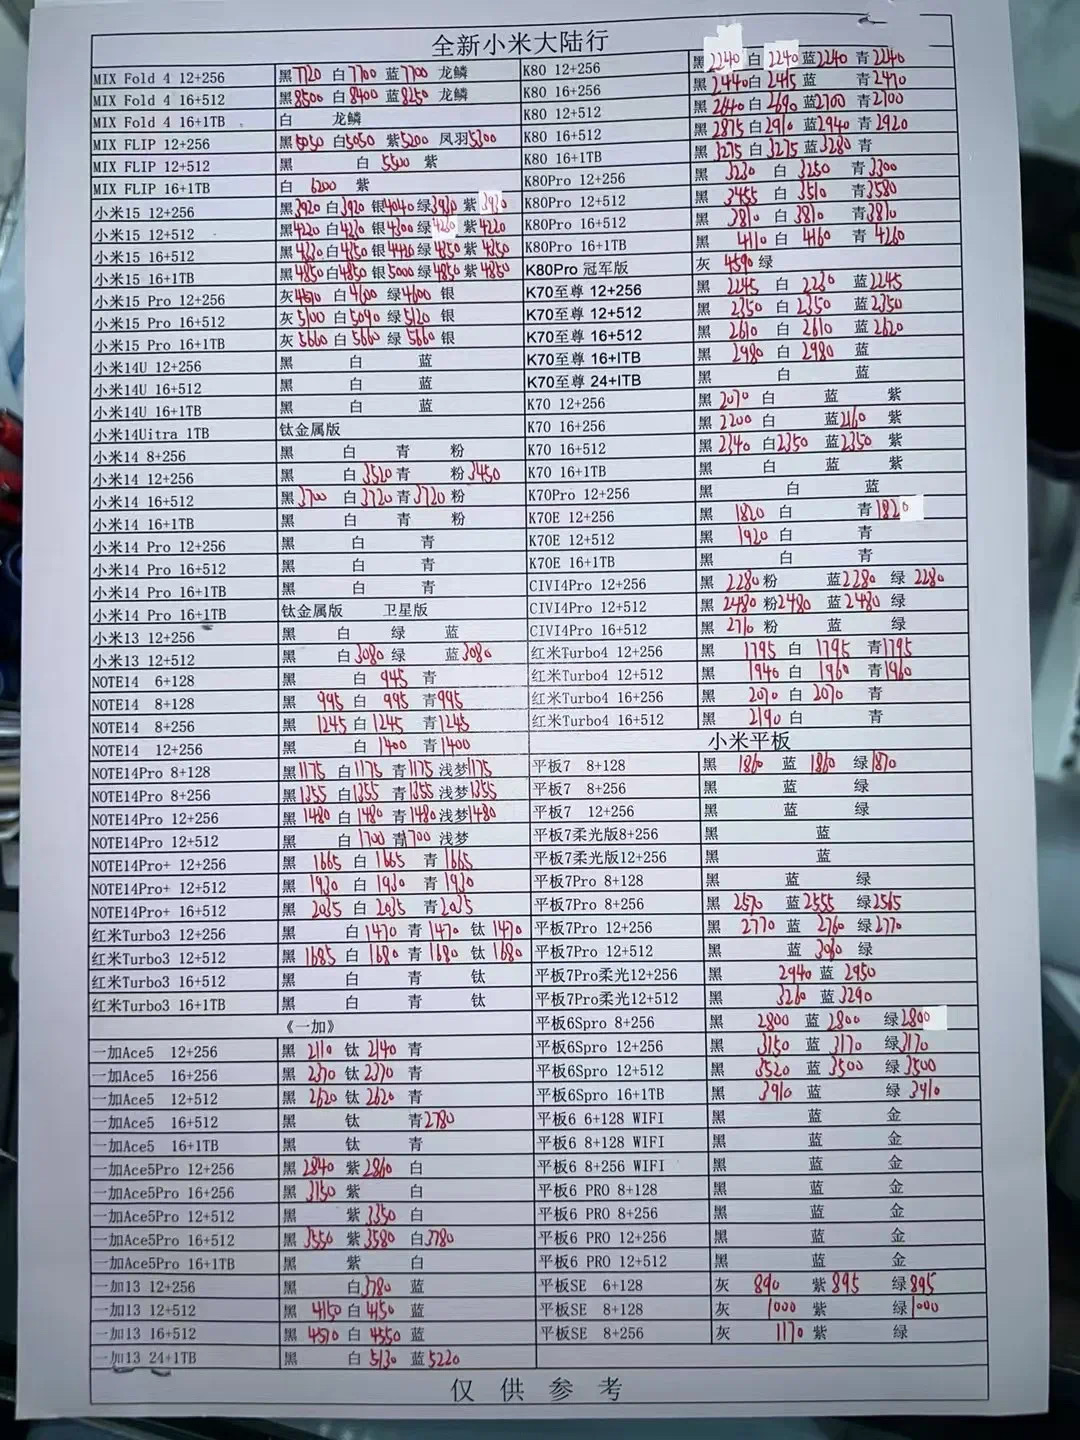 全新小米大陆行
MIX Fold 4 12+256 黑7720 白7700 蓝7700 龙鳞
MIX Fold 4 16+512 黑8500 白8400 蓝8250 龙鳞
MIX Fold 4 16+1TB 白 龙鳞
MIX FLIP 12+256 黑5050 白5050 紫5200 凤羽5300
MIX FLIP 12+512 黑 白 5500 紫
MIX FLIP 16+1TB 白 6200 紫
小米15 12+256 黑3920 白3920 银4040 绿3930 紫3930
小米15 12+512 黑4220 白4230 银4300 绿4260 紫4220
小米15 16+512 黑4330 白4350 银4420 绿4350 紫4350
小米15 16+1TB 黑4850 白4850 银5000 绿4850 紫4850
小米15 Pro 12+256 灰4570 白4600 绿4600 银
小米15 Pro 16+512 灰5100 白5090 绿5120 银
小米15 Pro 16+1TB 灰5660 白5660 绿5660 银
小米14U 12+256 黑 白 蓝
小米14U 16+512 黑 白 蓝
小米14U 16+1TB 黑 白 蓝
小米14Uitra 1TB 钛金属版
小米14 8+256 黑 白 青 粉
小米14 12+256 黑 白3520 青 粉3450
小米14 16+512 黑3700 白3720 青3720 粉
小米14 16+1TB 黑 白 青 粉
小米14 Pro 12+256 黑 白 青
小米14 Pro 16+512 黑 白 青
小米14 Pro 16+1TB 黑 白 青
小米14 Pro 16+1TB 钛金属版 卫星版
小米13 12+256 黑 白 绿 蓝
小米13 12+512 黑 白3080 绿 蓝3080
NOTE14 6+128 黑 白 945 青
NOTE14 8+128 黑 995 白 995 青995
NOTE14 8+256 黑 1245 白 1245 青1245
NOTE14 12+256 黑 白 1400 青1400
NOTE14Pro 8+128 黑1175 白1175 青1175 浅梦1175
NOTE14Pro 8+256 黑1355 白1355 青1355 浅梦1355
NOTE14Pro 12+256 黑1480 白1480 青1480 浅梦1480
NOTE14Pro 12+512 黑 白1700 青1700 浅梦
NOTE14Pro+ 12+256 黑 1665 白 1665 青1665
NOTE14Pro+ 12+512 黑 1930 白 1930 青1930
NOTE14Pro+ 16+512 黑 2035 白 2035 青2035
红米Turbo3 12+256 黑 白1470 青1470 钛1470
红米Turbo3 12+512 黑1685 白1680 青1680 钛1680
红米Turbo3 16+512 黑 白 青 钛
红米Turbo3 16+1TB 黑 白 青 钛
《一加》
一加Ace5 12+256 黑 2110 钛 2140 青
一加Ace5 16+256 黑 2370 钛 2370 青
一加Ace5 12+512 黑 2620 钛 2620 青
一加Ace5 16+512 黑 钛 青2780
一加Ace5 16+1TB 黑 钛 青
一加Ace5Pro 12+256 黑 2840 紫 2860 白
一加Ace5Pro 16+256 黑 3150 紫 白
一加Ace5Pro 12+512 黑 紫3350 白
一加Ace5Pro 16+512 黑 3550 紫3580 白3780
一加Ace5Pro 16+1TB 黑 紫 白
一加13 12+256 黑 白3780 蓝
一加13 12+512 黑 4150 白 4150 蓝
一加13 16+512 黑 4570 白 4550 蓝
一加13 24+1TB 黑 白 5130 蓝5220
K80 12+256 黑2240 白2240 蓝2240 青2240
K80 16+256 黑2440 白2415 蓝 青2470
K80 12+512 黑2640 白2690 蓝2700 青2700
K80 16+512 黑2875 白2910 蓝2940 青2920
K80 16+1TB 黑3275 白3275 蓝3280 青
K80Pro 12+256 黑 3230 白 3250 青3300
K80Pro 12+512 黑 3455 白 3510 青3580
K80Pro 16+512 黑 3810 白 3810 青3810
K80Pro 16+1TB 黑 4110 白 4160 青 4260
K80Pro 冠军版 灰 4590 绿
K70至尊 12+256 黑 2245 白 2230 蓝2245
K70至尊 12+512 黑 2350 白 2350 蓝2350
K70至尊 16+512 黑 2610 白 2610 蓝2620
K70至尊 16+ITB 黑 2980 白 2980 蓝
K70至尊 24+ITB 黑 白 蓝
K70 12+256 黑 2070 白 蓝 紫
K70 16+256 黑 2200 白 蓝2160 紫
K70 16+512 黑 2340 白2350 蓝2350 紫
K70 16+1TB 黑 白 蓝 紫
K70Pro 12+256 黑 白 蓝
K70E 12+256 黑 1820 白 青1820
K70E 12+512 黑 1920 白 青
K70E 16+1TB 黑 白 青
CIVI4Pro 12+256 黑 2280 粉 蓝2280 绿 2280
CIVI4Pro 12+512 黑 2480 粉2480 蓝2480 绿
CIVI4Pro 16+512 黑 2710 粉 蓝 绿
红米Turbo4 12+256 黑 1795 白 1795 青1795
红米Turbo4 12+512 黑 1940 白 1960 青1960
红米Turbo4 16+256 黑 2070 白 2070 青
红米Turbo4 16+512 黑 2190 白 青
小米平板
平板7 8+128 黑 1860 蓝 1860 绿1870
平板7 8+256 黑 蓝 绿
平板7 12+256 黑 蓝 绿
平板7柔光版8+256 黑 蓝
平板7柔光版12+256 黑 蓝
平板7Pro 8+128 黑 蓝 绿
平板7Pro 8+256 黑 2570 蓝2555 绿2565
平板7Pro 12+256 黑 2770 蓝 2760 绿2770
平板7Pro 12+512 黑 蓝 3060 绿
平板7Pro柔光12+256 黑 2940 蓝 2950
平板7Pro柔光12+512 黑 3260 蓝3290
平板6Spro 8+256 黑 2800 蓝 2800 绿2800
平板6Spro 12+256 黑 3150 蓝 3170 绿3170
平板6Spro 12+512 黑 3520 蓝 3500 绿3500
平板6Spro 16+1TB 黑 3910 蓝 绿 3910
平板6 6+128 WIFI 黑 蓝 金
平板6 8+128 WIFI 黑 蓝 金
平板6 8+256 WIFI 黑 蓝 金
平板6 PRO 8+128 黑 蓝 金
平板6 PRO 8+256 黑 蓝 金
平板6 PRO 12+256 黑 蓝 金
平板6 PRO 12+512 黑 蓝 金
平板SE 6+128 灰 890 紫895 绿895
平板SE 8+128 灰 1000 紫 绿1000
平板SE 8+256 灰 1170 紫 绿
仅供参考